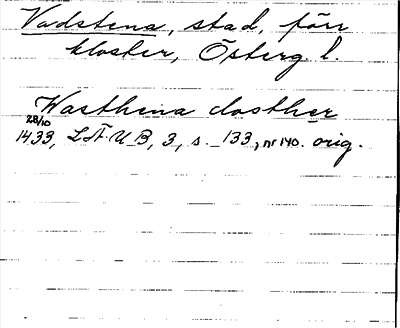 Vadstena, stad, förr
kloster, Österg l.
Wasthena closther
28/10
1433, LSÄUB, 3, s. 133, nr 140. orig.